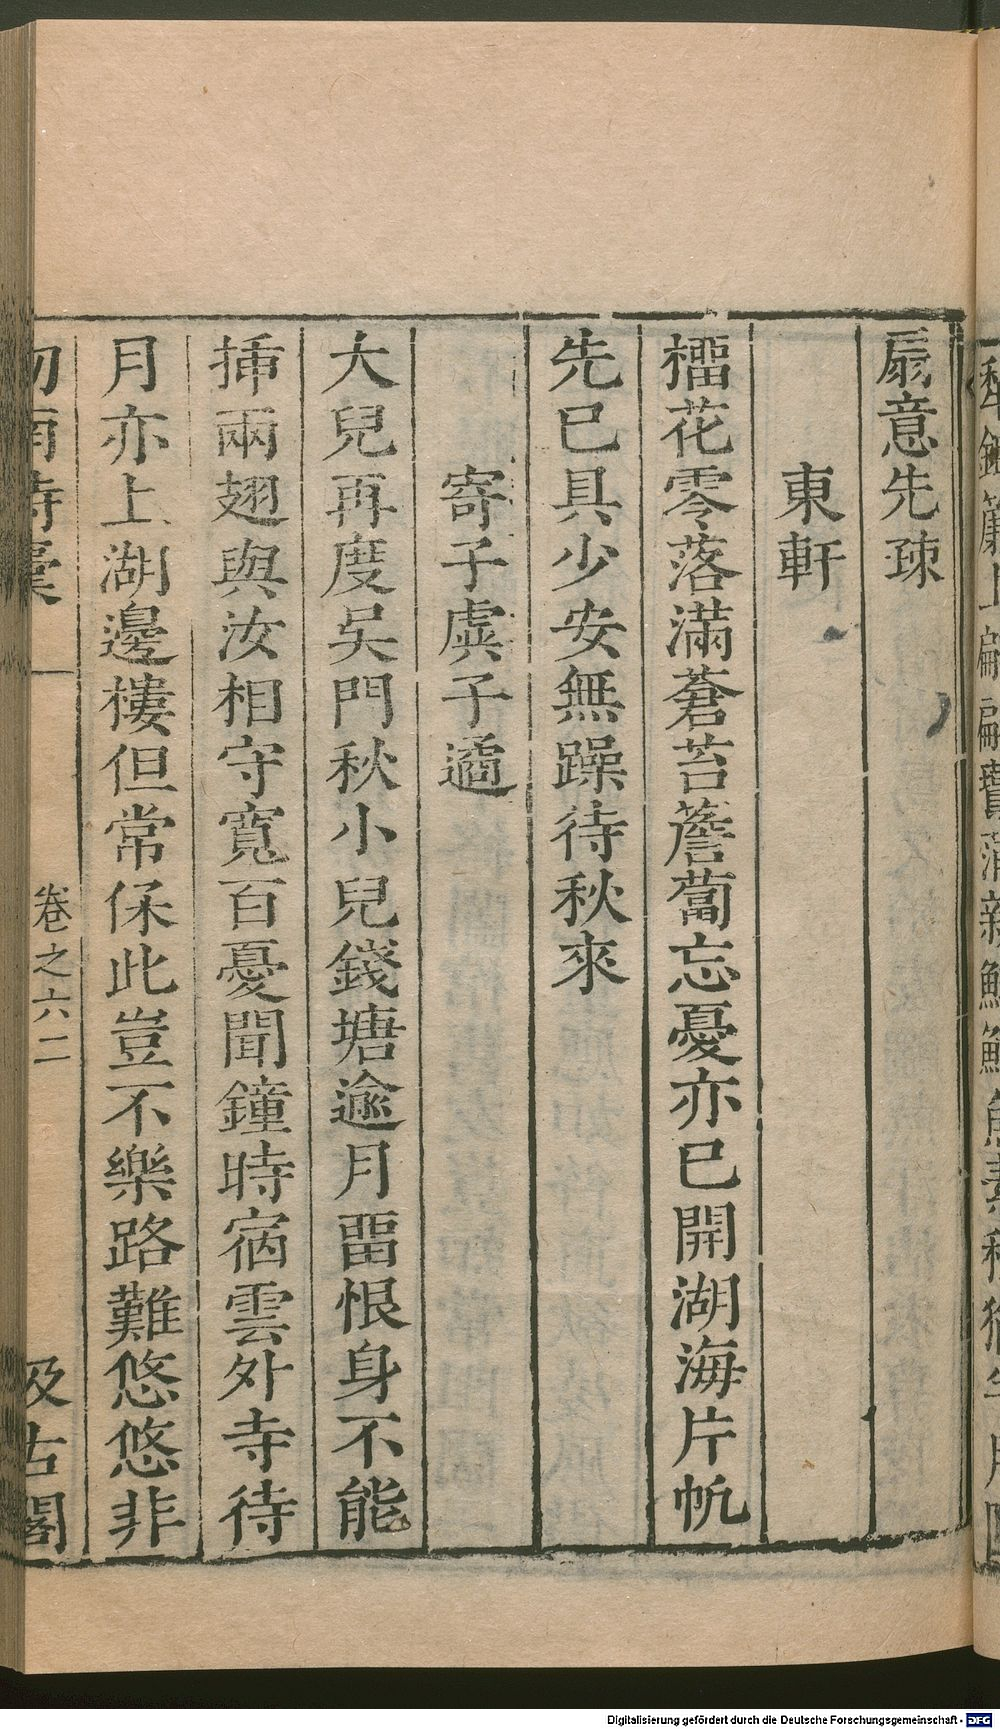 扇意先疎
東軒
橊花零落滿蒼苔簷蔔忘憂亦已開湖海片帆
先已具少安無躁待秋來
寄子虡子遹
大兒再度吳門秋小兒錢塘逾月畱恨身不能
揷兩翅與汝相守寬百憂聞鐘時宿雲外寺待
月亦上湖邊樓但常係此豈不樂路難悠悠非
卷之六 二
汲古閣
Digitalisierung gefördert durch die Deutsche Forschungsgemeinschaft - DFG